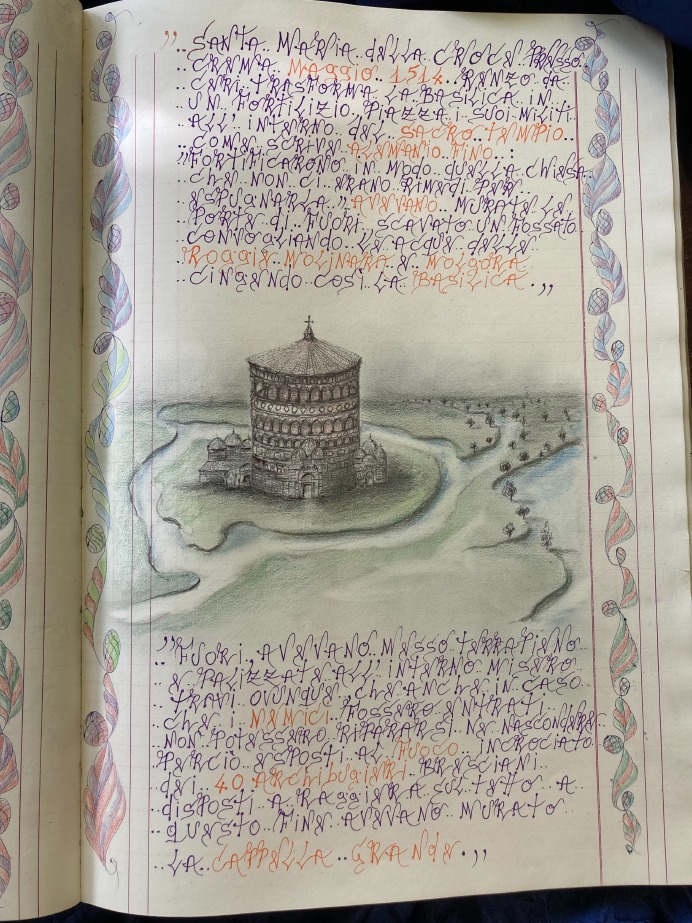 "..SANTA..MARIA dELLA..CROCE..PRESSO..
..CREMA..MAGGIO..1514..RENZO dA
..CERI..TRASFORMA..LA BASILICA..IN..
..UN..FORTILIZIO..PIAZZA..i SUOI MILITI
..ALL'INTERNO..dEL..SACRO..TEMPIO..
..COME..SCRIVE..ALEMANIO..FINO..:
"FORTIFICARONO..IN..MODO..QUELLA..CHIESA..
..CHE..NON..CI..ERANO..RIMEDI..PER
..ESPUGNARLA..,..AVEVANO..MURATE..LE
..PORTE..di..FUORI..SCAVATO..UN..FOSSATO..
..CONVOGLIANDO..LE ACQUE..dELLE
..ROGGIE..MOLINARA..E..MOLGORA
..CINGENDO..COSI..LA..BASILICA..„
"FUORI..AVEVANO..MESSO..TERRAPIENO..
..E..PALIZZATE..ALL'INTERNO..MISERO..
..TRAVI..OVUNQUE..,..CHE ANCHE..IN..CASO
..CHE..i..NEMICI..FOSSERO..ENTRATI..
..NON..POTESSERO..RIPARARSI..NE..NASCONdERE..
..PERCIO..ESPOSTI..AL..FUOCO..INCROCIATO
..dEi..40..ARCHIBUGIERI..BRESCIANI..
..dISPOSTI..A..RAGGIERA..SUL..TETTO..A
..QUESTO..FINE..AVEVANO..MURATO..
..LA..CAPPELLA..GRANdE..„